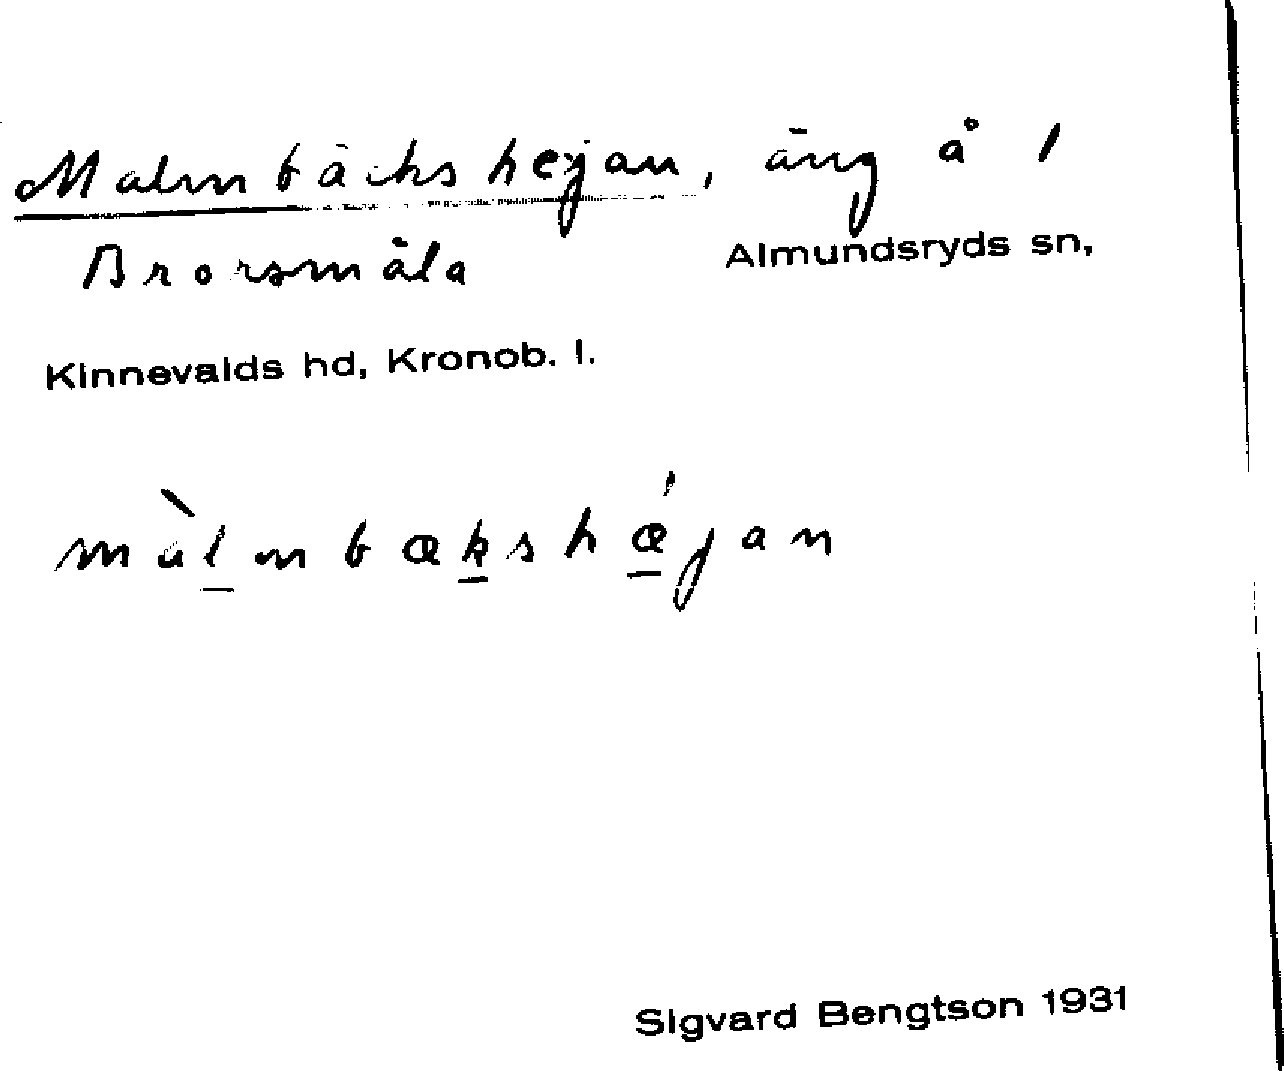 Malmbäckshejan, äng å 1
Brorsmåla Almundsryds sn,
Kinnevalds hd, Kronob. l.
màl̲mbæk̲shǽ̲jan
Sigvard Bengtson 1931